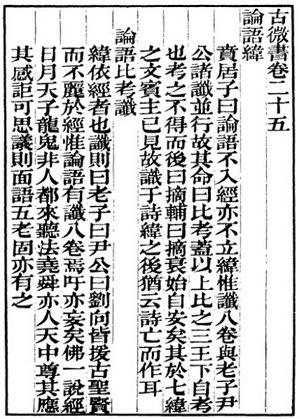 古微書卷二十五
論語緯
賁居子曰論語不入經亦不立緯惟讖八卷與老子尹
公諸讖並行故其命曰比考蓋以上比之三王下自考
也考之不得而後曰摘輔曰摘衰始自安矣其於七緯
之文賓主已見故讖于詩緯之後猶云詩亡而作耳
論語比考讖
緯依經者也讖則曰老子曰尹公曰劉向皆援古聖賢
而不麗於經惟論語有讖八卷焉吁亦妄矣佛一說經
日月天子龍鬼非人都來聽法堯舜亦人天中尊其應
其感詎可思議則面語五老固亦有之